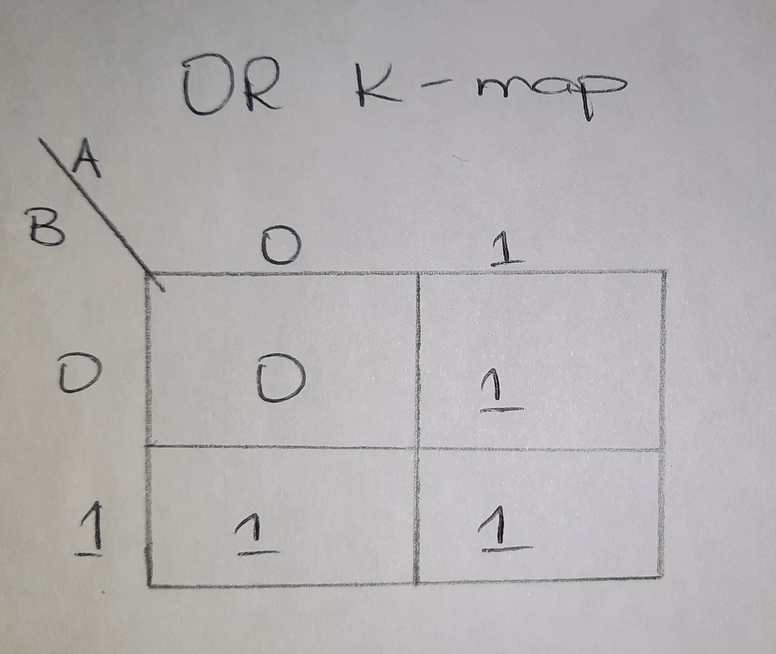 OR K-map
A
B
0 1
0 0 1
1 1 1